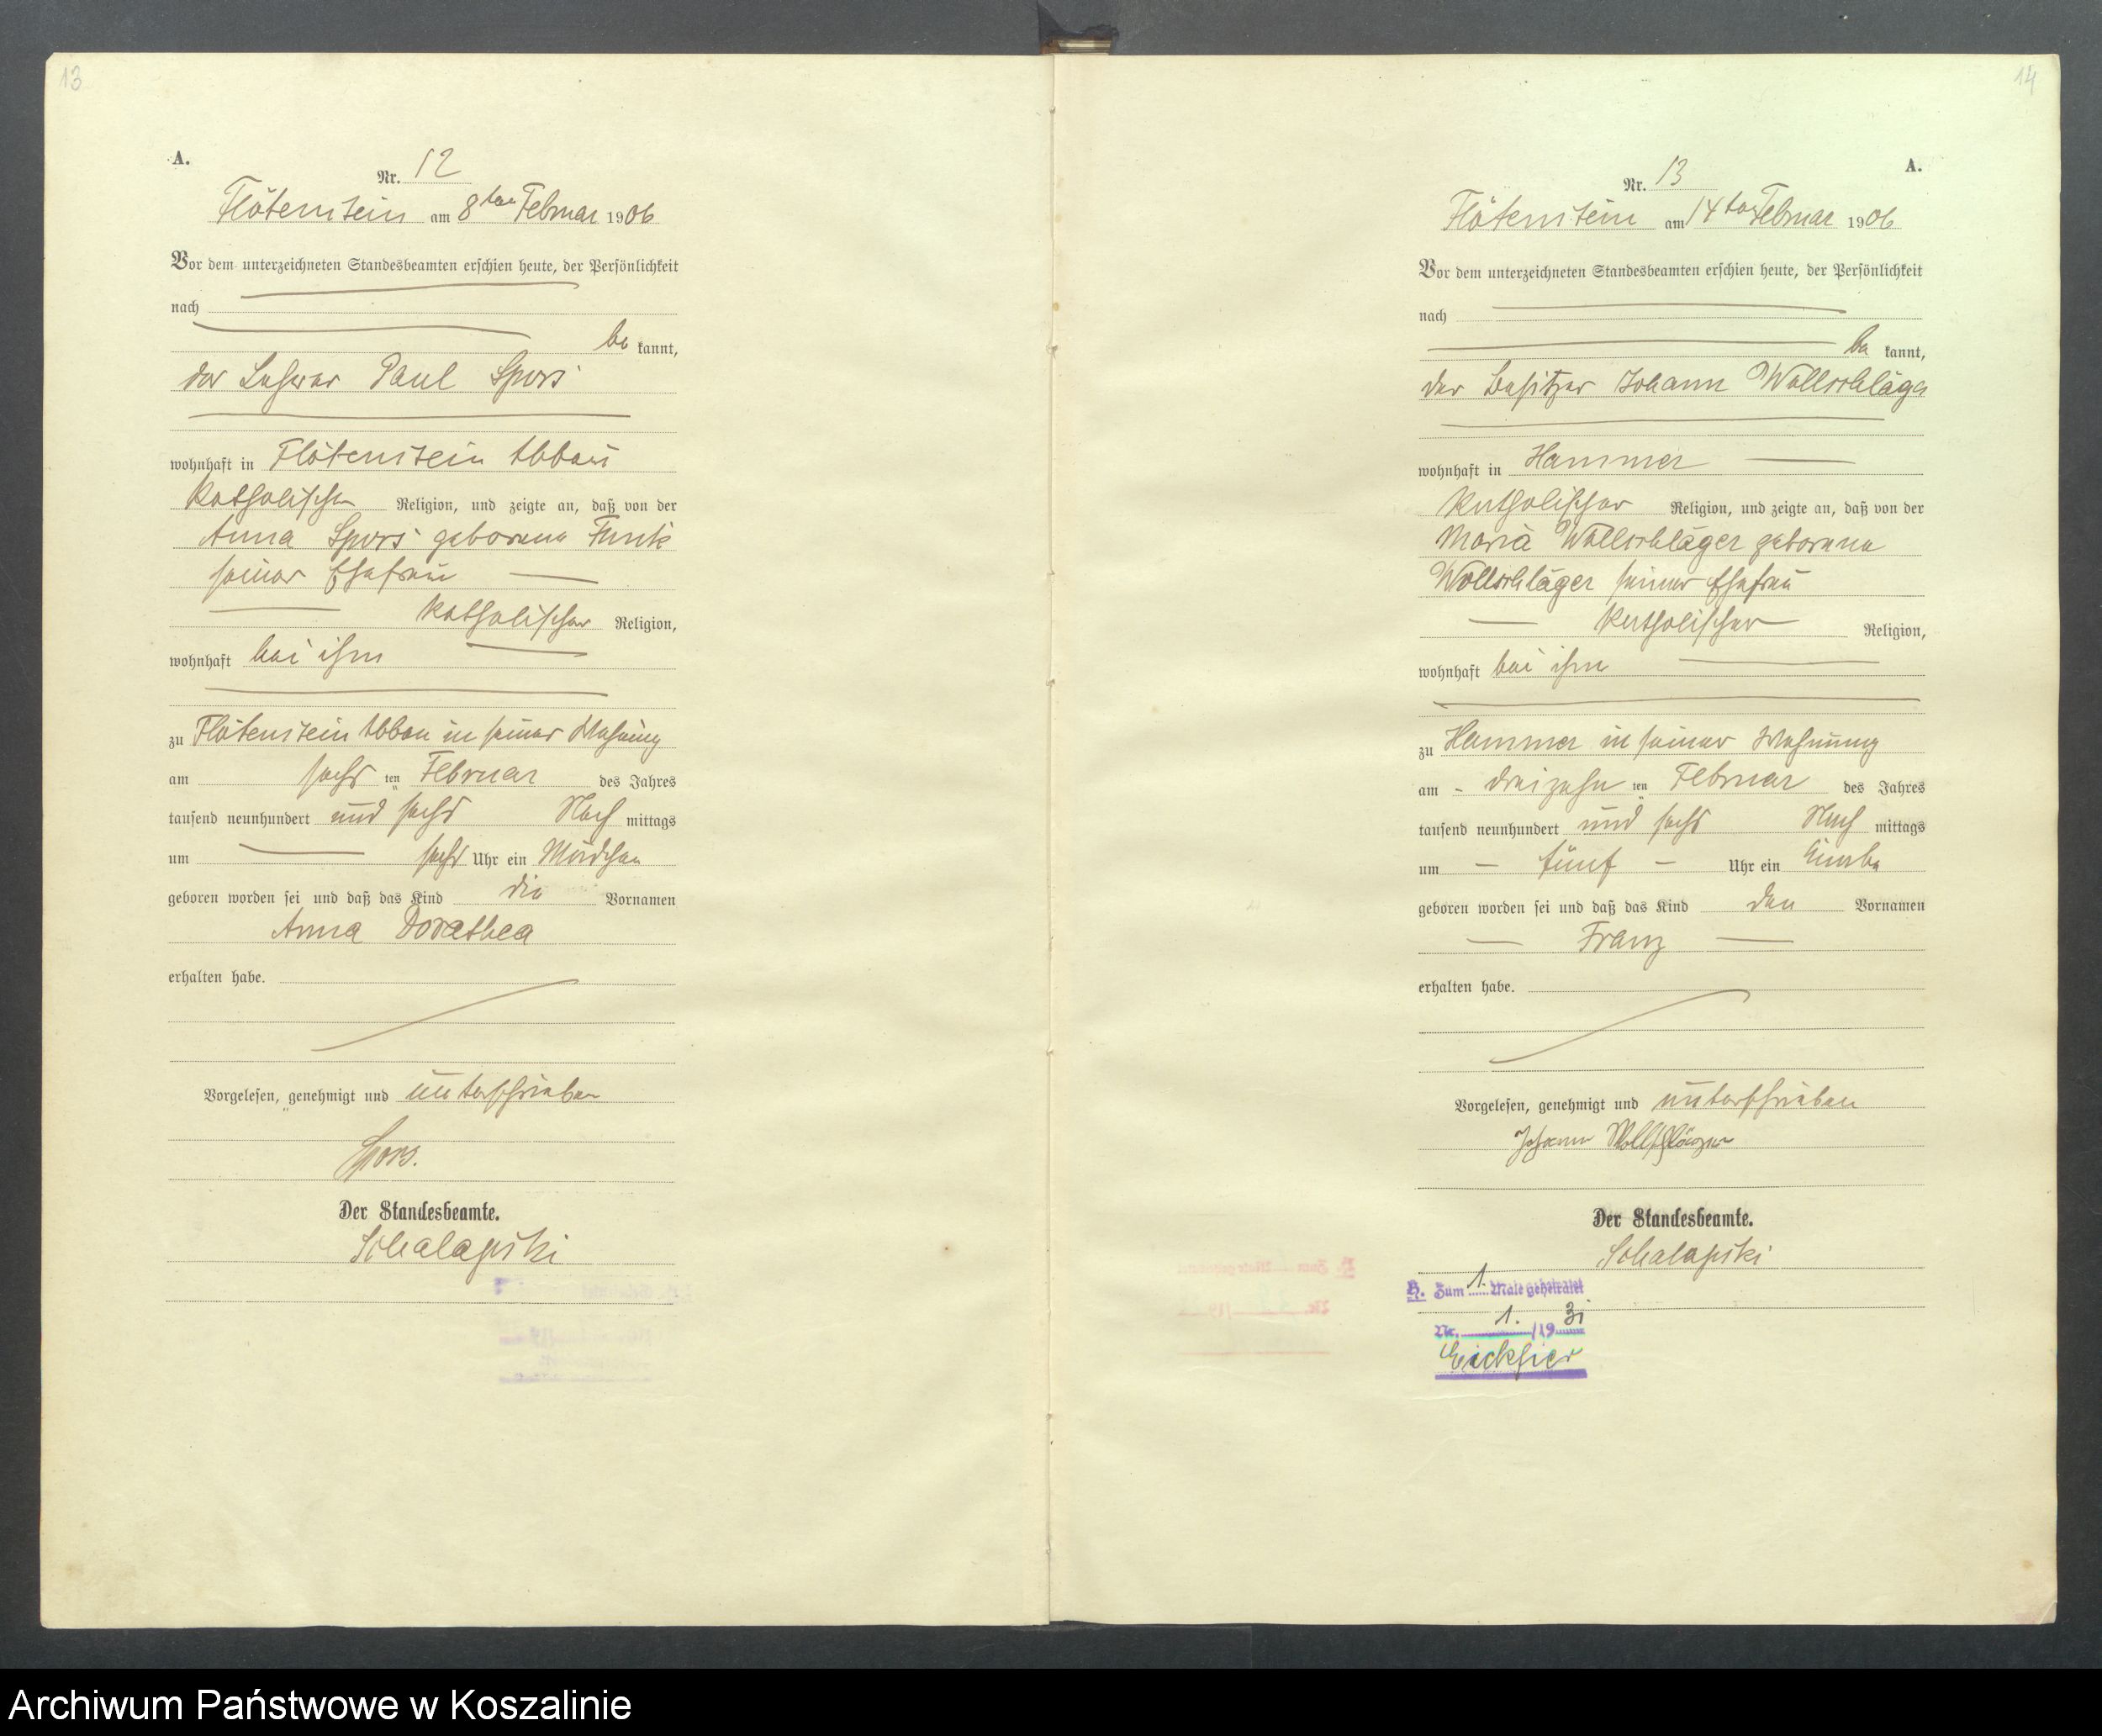 13
A.
Nr. 12
Flötenstein am 8ten Februar 1906
Vor dem unterzeichneten Standesbeamten erschien heute, der Persönlichkeit
nach
be kannt,
der Lehrer Paul Spors
wohnhaft in Flötenstein Abbau
katholischer Religion, und zeigte an, daß von der
Anna Spors geborene Funk
seiner Ehefrau
katholischer Religion,
wohnhaft bei ihm
zu Flötenstein Abbau in seiner Wohnung
am sechs ten Februar des Jahres
tausend neunhundert und sechs Nach mittags
um sechs Uhr ein Mädchen
geboren worden sei und daß das Kind die Vornamen
Anna Dorothea
erhalten habe.
Vorgelesen, genehmigt und unterschrieben
Spors.
Der Standesbeamte.
Schalapski
14
A.
Nr. 13
Flötenstein am 14ten Februar 1906
Vor dem unterzeichneten Standesbeamten erschien heute, der Persönlichkeit
nach
be kannt,
der Besitzer Johann Wollschläger
wohnhaft in Hammer
katholischer Religion, und zeigte an, daß von der
Maria Wollschläger geborene
Wollschläger seiner Ehefrau
katholischer Religion,
wohnhaft bei ihm
zu Hammer in seiner Wohnung
am dreizehn ten Februar des Jahres
tausend neunhundert und sechs Nach mittags
um fünf Uhr ein Knabe
geboren worden sei und daß das Kind den Vornamen
Franz
erhalten habe.
Vorgelesen, genehmigt und unterschrieben
Johann Wollschläger
Der Standesbeamte.
Schalapski
H. Zum 1. Male geheiratet
Nr. 1. /1931
Eickfier
Archiwum Państwowe w Koszalinie